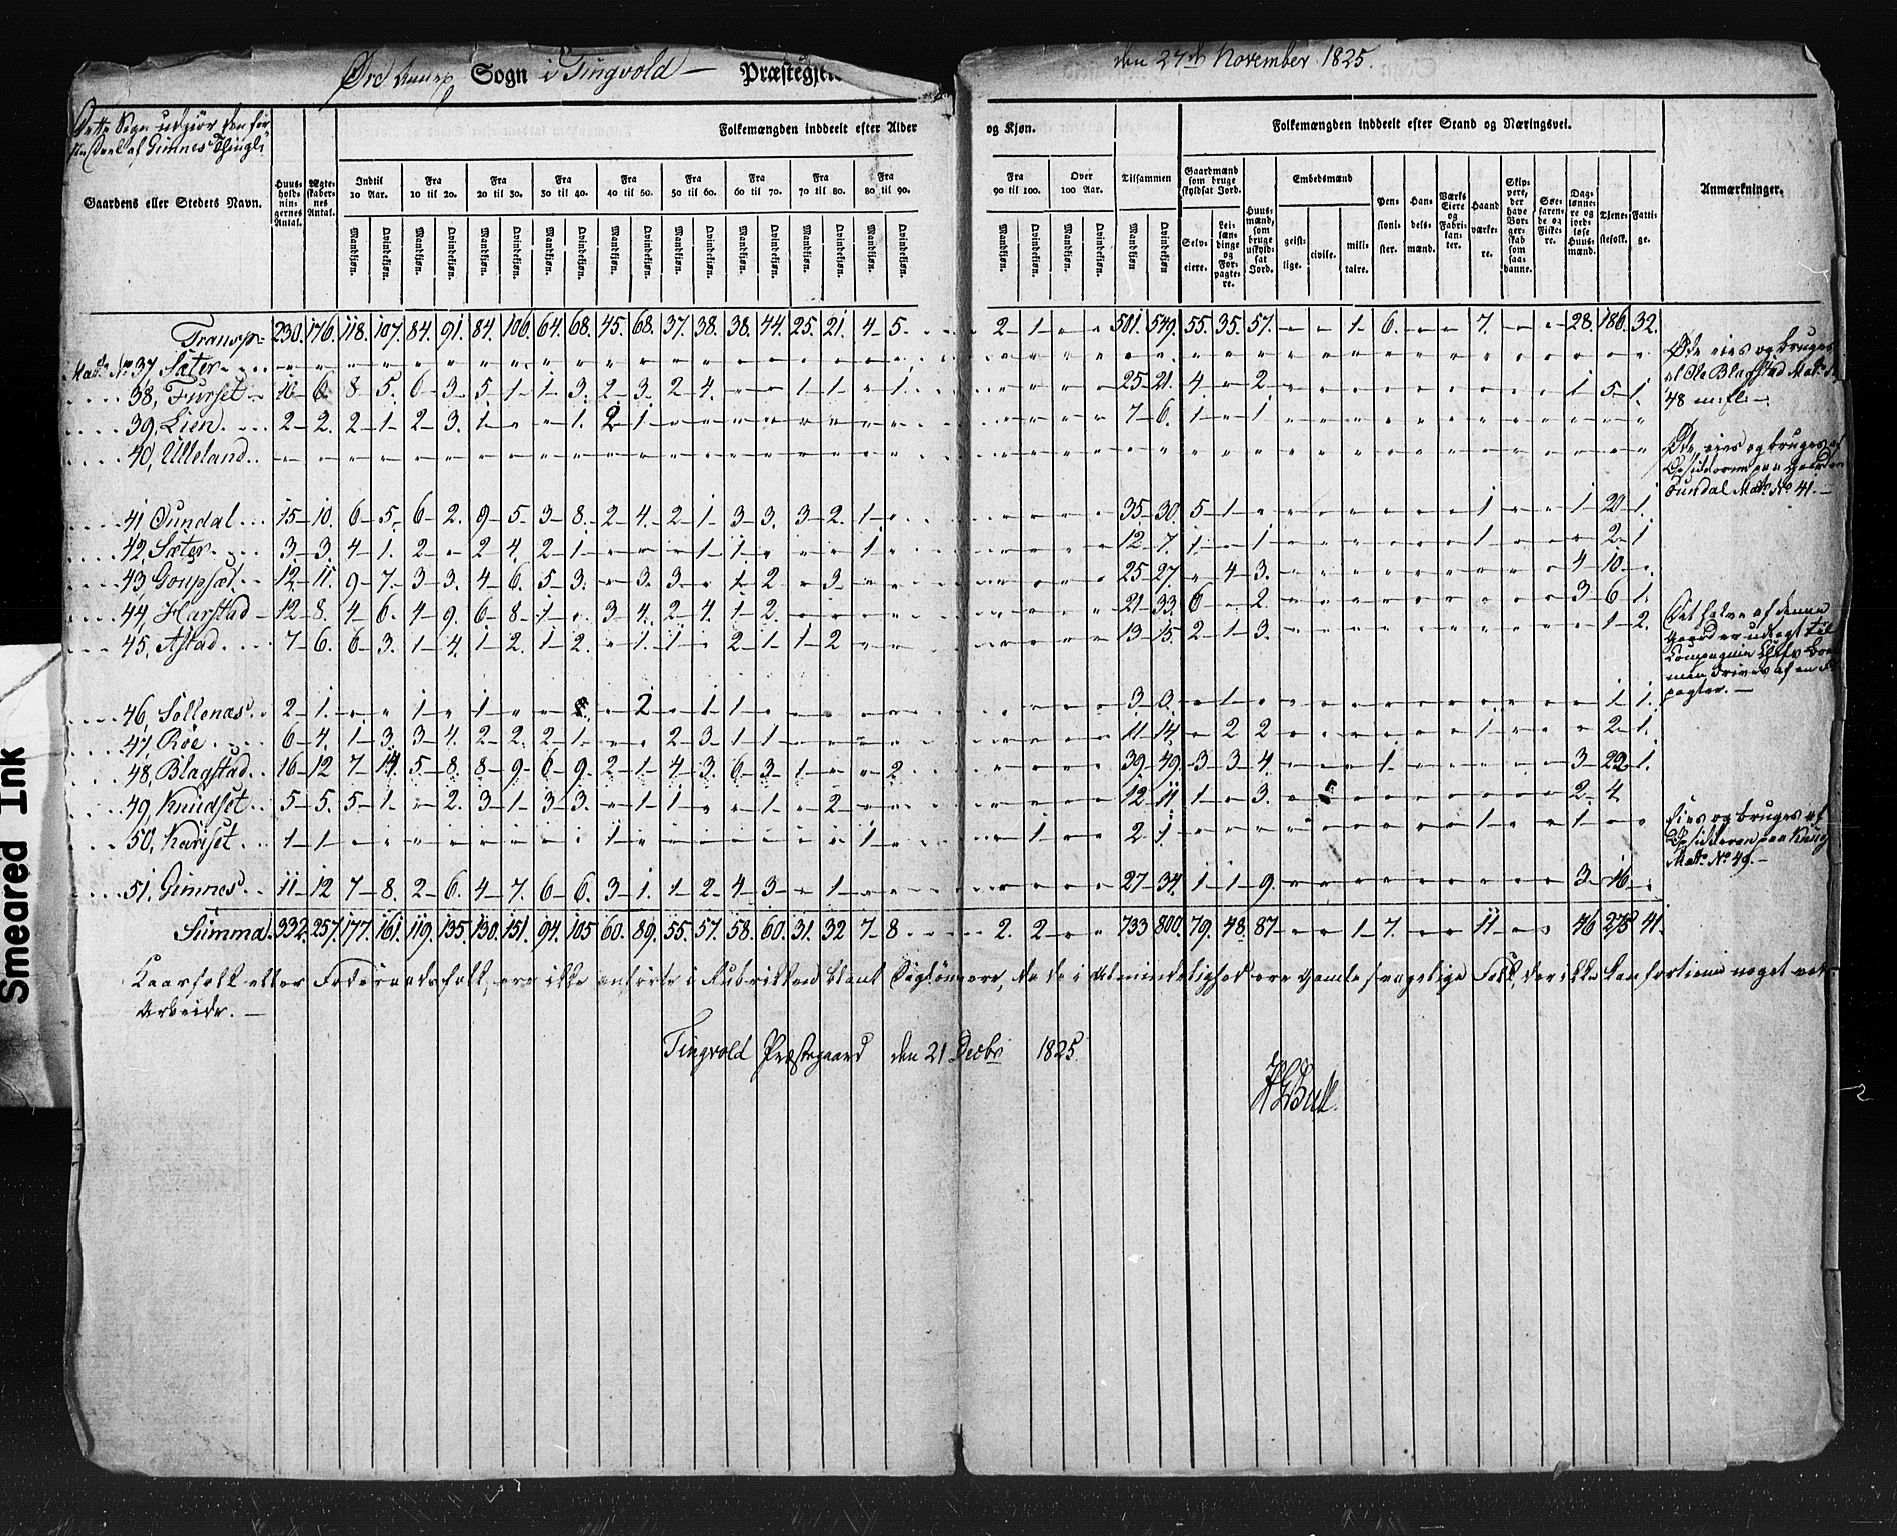 Sogn i Tingvold — Præstegje
den 27de November 1825.
Dette Sogn udgiør den før
af Gimnes Thingl:
Folkemængden inddeelt efter Alder og Kjøn.
Folkemængden inddeelt efter Stand og Næringsvei.
Gaardens eller Stedets Navn.
Huusholdningernes Antal.
Ægteskabernes Antal.
Indtil 10 Aar.
Fra 10 til 20.
Fra 20 til 30.
Fra 30 til 40.
Fra 40 til 50.
Fra 50 til 60.
Fra 60 til 70.
Fra 70 til 80.
Fra 80 til 90.
Fra 90 til 100.
Over 100 Aar.
Tilsammen
Mandkjøn. Qvindekjøn.
Gaardmænd som bruge skyldsat Jord.
Selveiere.
Leilændinge og Forpagtere.
Huusmænd, som bruge uskyldsat Jord.
Embedsmænd
geistlige.
civile.
militaire.
Pensionister.
Handelsmænd.
Værks Eiere og Fabrikanter.
Haandværkere.
Skippere, der have Borgerskab som saadanne.
Søefarende og Fiskere.
Daglønnere og jordløse Huusmænd.
Tjenestefolk.
Fattige.
Anmærkninger.
Transp: 230. 176. 118. 107. 84. 91. 84. 106. 64. 68. 45. 68. 37. 38. 38. 44. 25. 21. 4 5. 2 1 501. 549. 55. 35. 57. 1 6. 7. 28. 186. 32.
Mat: No 37 Sæter
Øde eies og bruges
af Ole Blagstad Mat: No
48 m.fl. —
38, Furset 10 6. 8 5. 6 3. 5 1 1 3. 2 3. 2 4. 1 1 1. 25 21. 4 2 1 5 1.
39, Lien 2 2. 2 1. 2 3. 1 1. 2 1. 7 6. 1 1
40, Ulleland
Øde, eies og bruges af
Opsidderne paa Gaarden
Sundal Mat: No 41. —
41 Sundal 15 10. 6 5. 6 2. 9 5. 3 8. 2 4. 2 1. 3 3. 3 2. 1 35 30. 5 1 1 1 20 1.
42, Sæter 3 3. 4 1. 2 2 4. 2 1. 1 1 1 12 7. 1 1 1 2 1
43, 12 11. 9 7. 3 3. 4 6. 5 3. 3. 3 1 2 3 25 27. 4 3. 4 10
44, Harstad 12 8. 4 6. 4 9. 6 8. 1 3 4. 2 4. 1 2. 21 33. 6 2. 3 6 1.
45, Astad 7 6. 6 3. 1 4. 1 2. 1 2. 1 1. 2 1. 1 2 13 15. 2 1 3. 1 2.
Det halve af denne
Gaard er udlagt til
Compagnie Chefs Bo
men drives af en For
pagter. —
46, Sollenæs 2 1. 1 1 2 1 1 3 3. 1 1 1.
47, Röe 6 4. 1 3. 3 4. 2 2. 2 1. 2 3. 1 1 11 14. 2 2 1 2 1.
48, Blagstad 16 12 7 14. 5 8. 8 9. 6 9. 2 1. 4 3. 6 3. 1 2 39 49. 3 3 4. 1 3 22 1.
49, Knudset 5 5. 5 1. 2. 3 1. 3 3. 1 1 1 2 12 11 1 3. 2 4
50, Kariset 1 1 1 1 1 2 1. 1 1
Eies og bruges af
Opsidderen paa Knuds
Mat: No 49. —
51, Gimnes 11 12 7 8. 2 6. 4 7. 6 6. 3 1. 1 2. 4 3. 1 27 34. 1 1 9. 3 16
Summa 332. 257. 177. 161. 119. 135. 130. 151. 94. 105 60. 89. 55. 57. 58. 60. 31. 32 7 8 2. 2 733 800. 79. 48. 87 1 7. 11 46 278 41.
Kaarfolk eller Føderaadsfolk, ere ikke anførte i Rubrikken blant Daglønnere, da de i Almindelighed ere Gamle svagelige Folk, der ikke kan fortiene noget ved
Arbeide. —
Tingvold Præstegaard den 21 Decbr 1825.
HGBull.
Smeared Ink